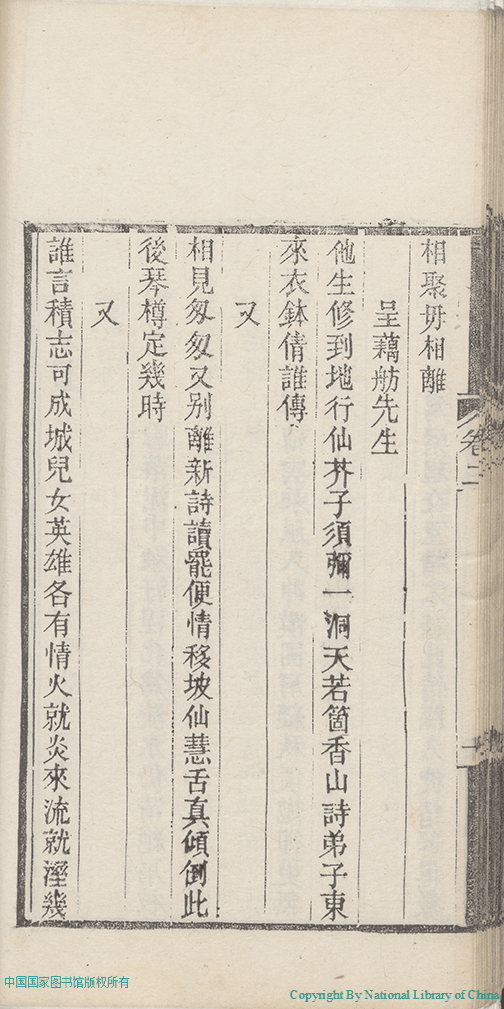 卷二
相聚毋相離
呈藕舫先生
他生修到地行仙芥子須彌一洞天若箇香山詩弟子東
來衣鉢倩誰傳
又
相見匆匆又别離新詩讀罷便情移坡仙慧舌真傾倒此
後琴樽定幾時
又
誰言積志可成城兒女英雄各有情火就炎來流就溼幾
中国国家图书馆版权所有
Copyright By National Library of China